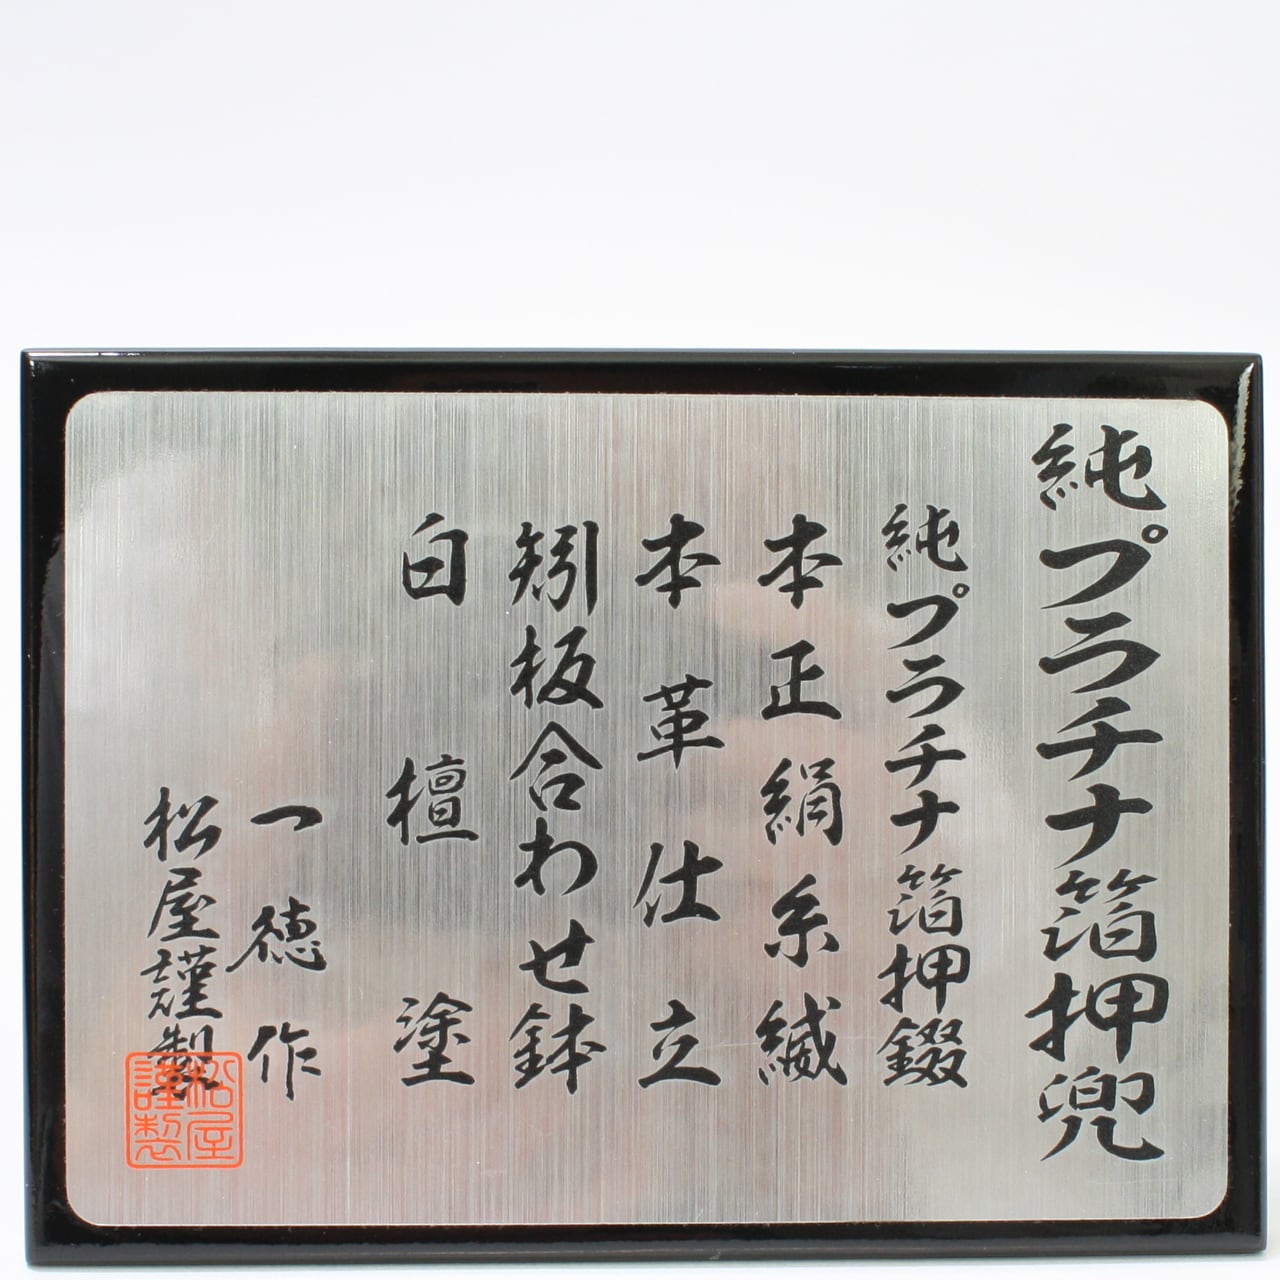 純プラチナ箔押兜
純プラチナ箔押錣
本正絹糸縅
本革仕立
矧板合わせ鉢
白檀塗
一徳作
松屋謹製
松屋謹製